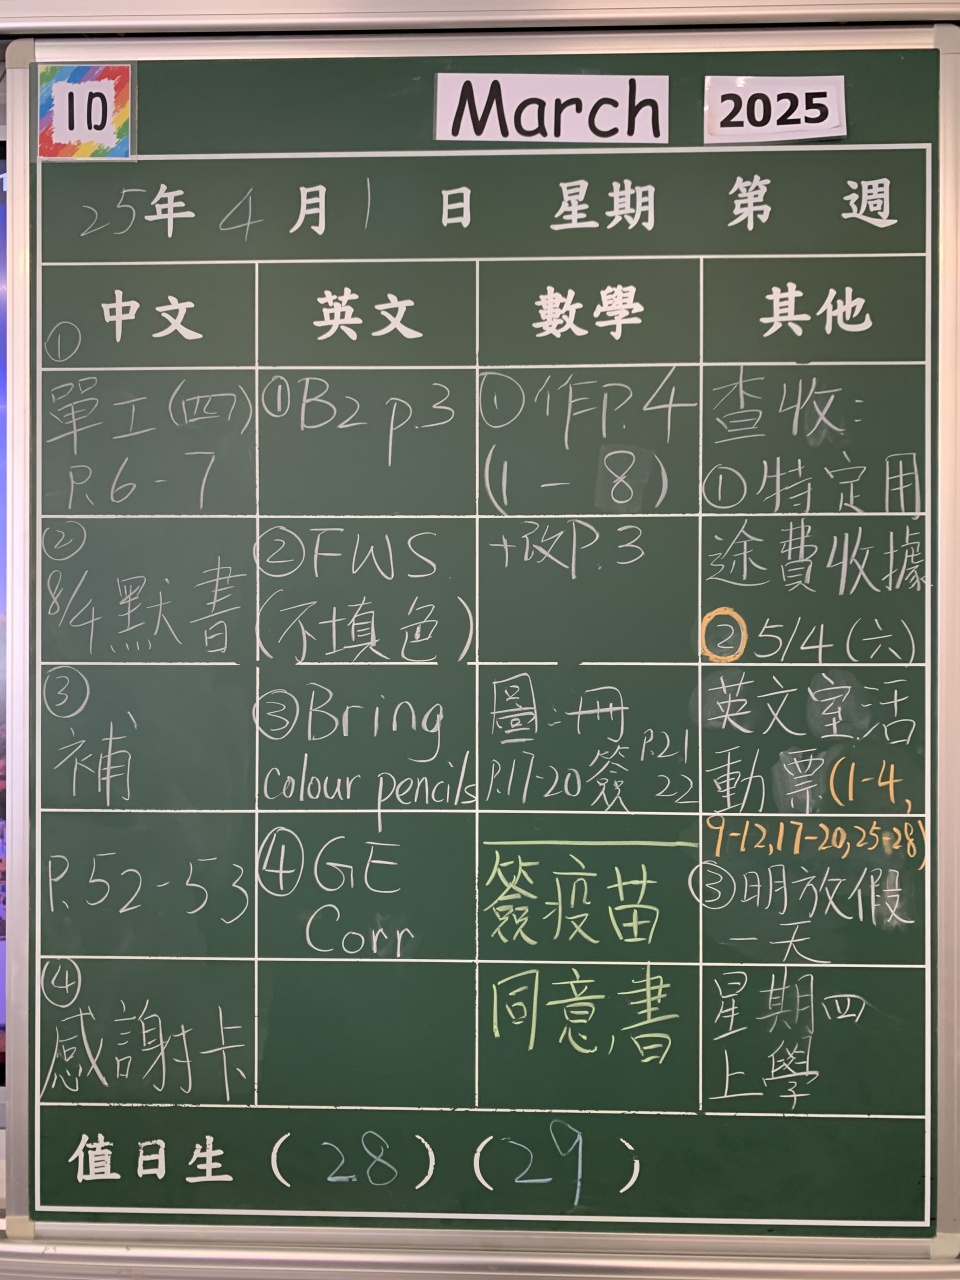 1D
March 2025
25年4月1日 星期 第 週
中文 英文 數學 其他
①
單工(四)
P.6-7
②
8/4默書
③
補
P.52-53
④
感謝卡
①B2 p.3
②FWS
(不填色)
③Bring
colour pencils
④GE
Corr
①作P.4
(1-8)
+改P.3
圖冊
P.17-20 簽 P.21
22
簽疫苗
同意書
查收:
①特定用
途費收據
②5/4(六)
英文室活
動票(1-4,
9-12,17-20,25-28)
③明放假
一天
星期四
上學
值日生(28)(29)